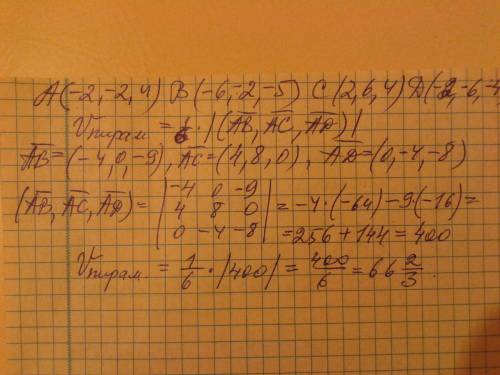 A(-2,-2,4) B(-6,-2,-5) C(2,6,4) D(-2,-6,-4
Vпирам = 1/6 · |(AB, AC, AD)|
AB = (-4,0,-9), AC = (4,8,0), AD = (0,-4,-8)
(AB, AC, AD) = |-4 0 -9
4 8 0
0 -4 -8| = -4·(-64)-9·(-16)=
=256+144=400
Vпирам = 1/6 · |400| = 400/6 = 66 2/3.